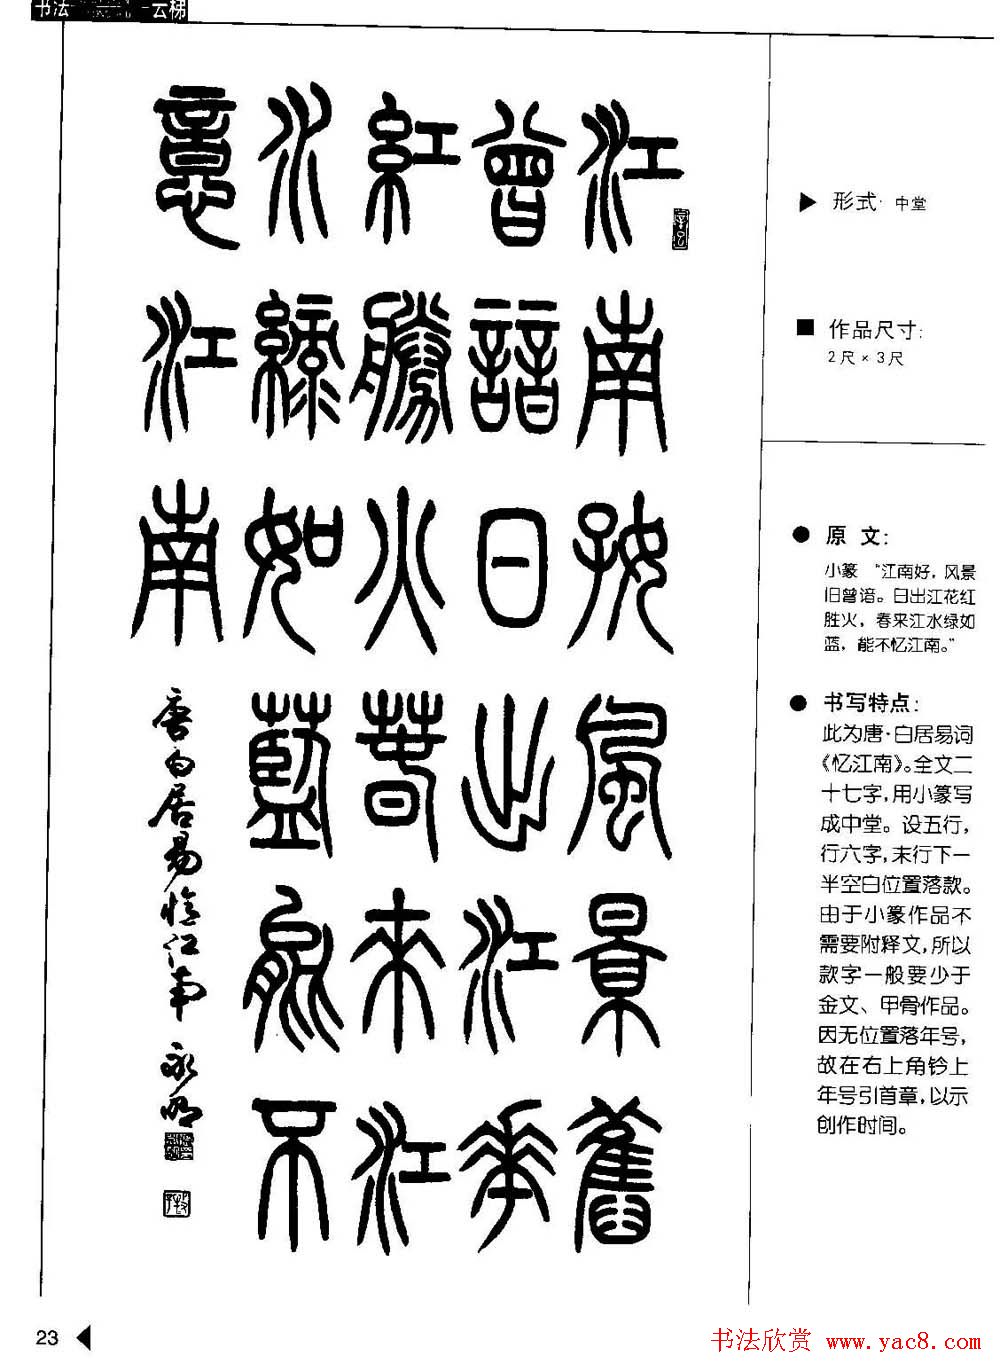 书法
云梯
江南好風景舊
曾諳日出江華
紅勝火春來江
水綠如藍能不
意江南
唐白居易憶江南 永明
▶ 形式· 中堂
■ 作品尺寸:
2尺×3尺
● 原 文:
小篆 “江南好，风景
旧曾谙。日出江花红
胜火，春来江水绿如
蓝，能不忆江南。”
● 书写特点:
此为唐·白居易词
《忆江南》。全文二
十七字，用小篆写
成中堂。设五行，
行六字，末行下一
半空白位置落款。
由于小篆作品不
需要附释文，所以
款字一般要少于
金文、甲骨作品。
因无位置落年号，
故在右上角钤上
年号引首章，以示
创作时间。
23
书法欣赏 www.yac8.com